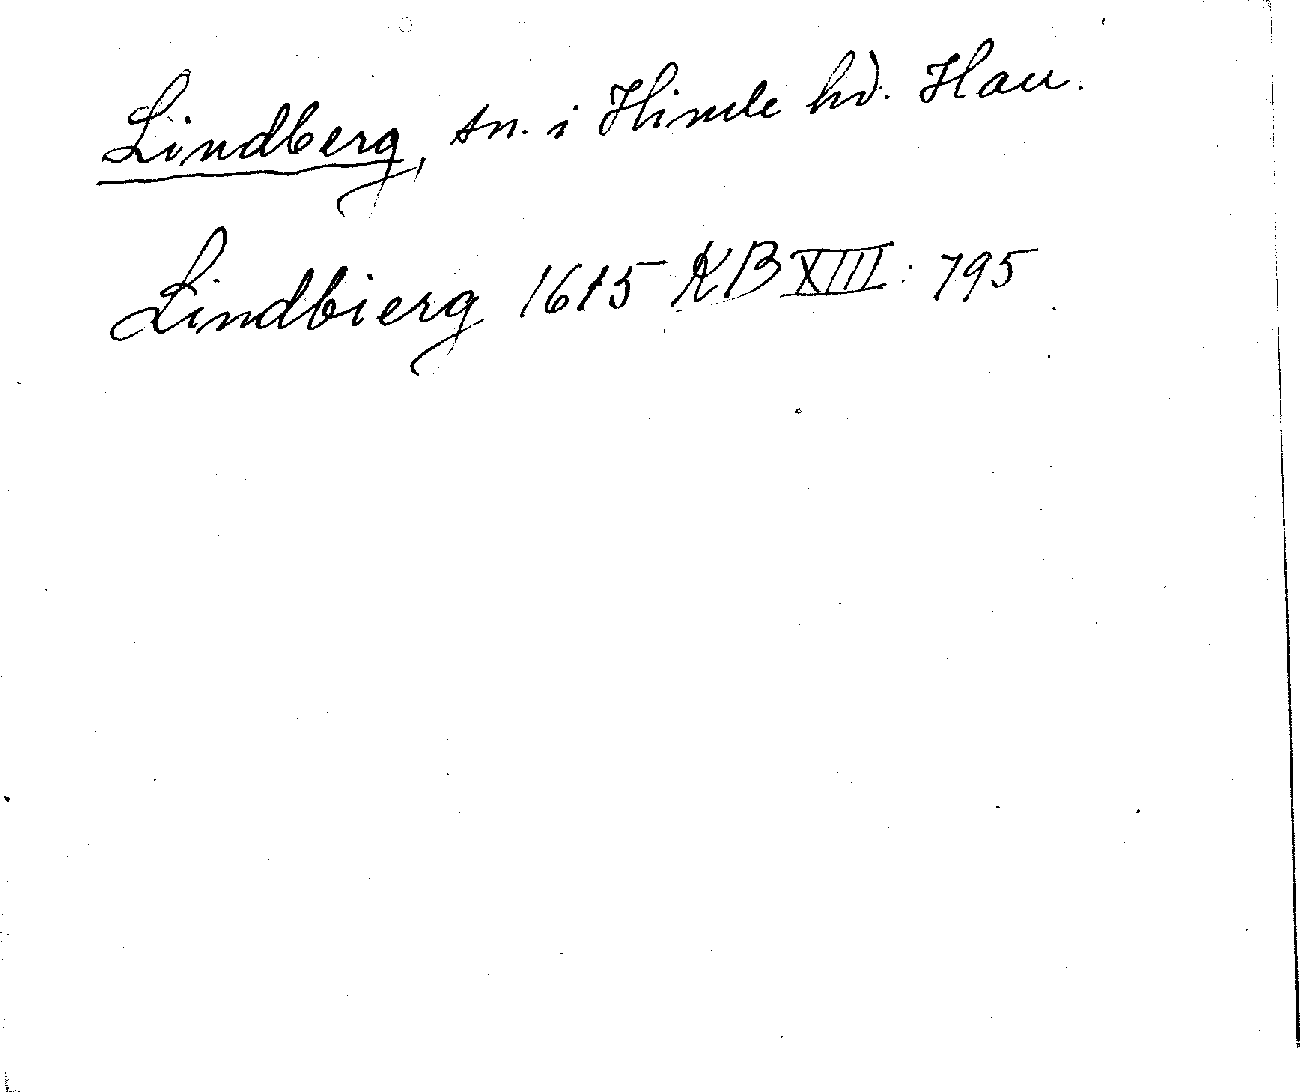 Lindberg, sn. i Himle hd. Hall.
Lindbierg 1615 KB XIII: 795